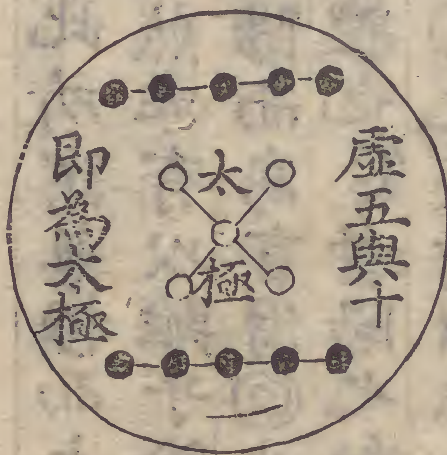 虛五與十
太極
即為太極